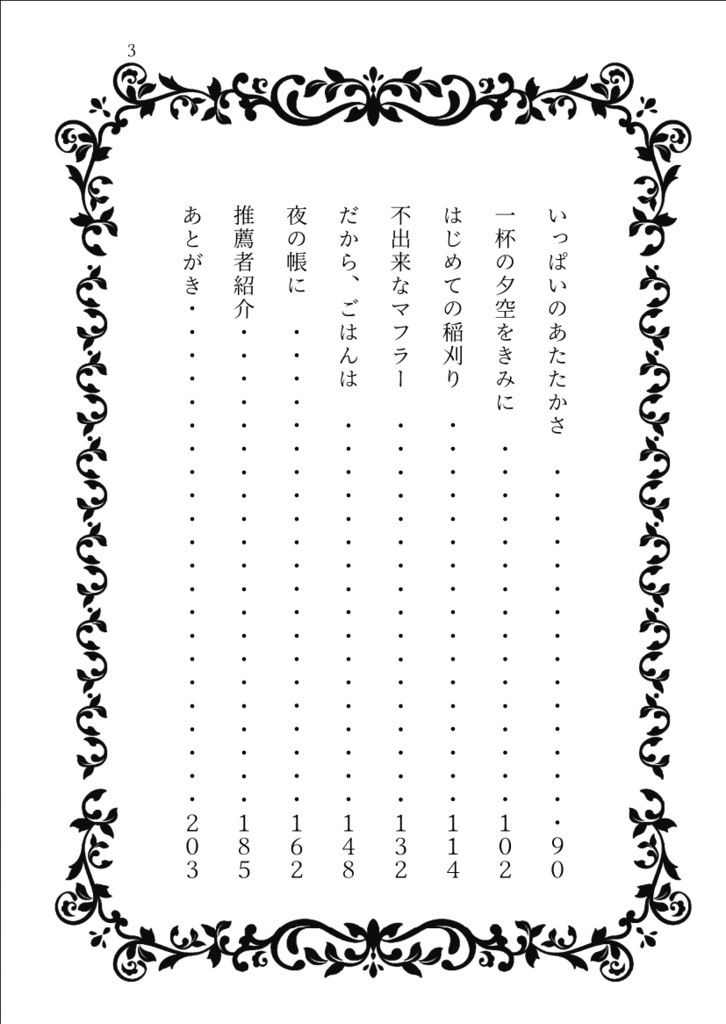 3
いっぱいのあたたかさ ・・・・・・・・・・・・・・・・90
一杯の夕空をきみに ・・・・・・・・・・・・・・・・102
はじめての稲刈り ・・・・・・・・・・・・・・・・・114
不出来なマフラー ・・・・・・・・・・・・・・・・・132
だから、ごはんは ・・・・・・・・・・・・・・・・・148
夜の帳に ・・・・・・・・・・・・・・・・・・・・・162
推薦者紹介・・・・・・・・・・・・・・・・・・・・・185
あとがき・・・・・・・・・・・・・・・・・・・・・・203